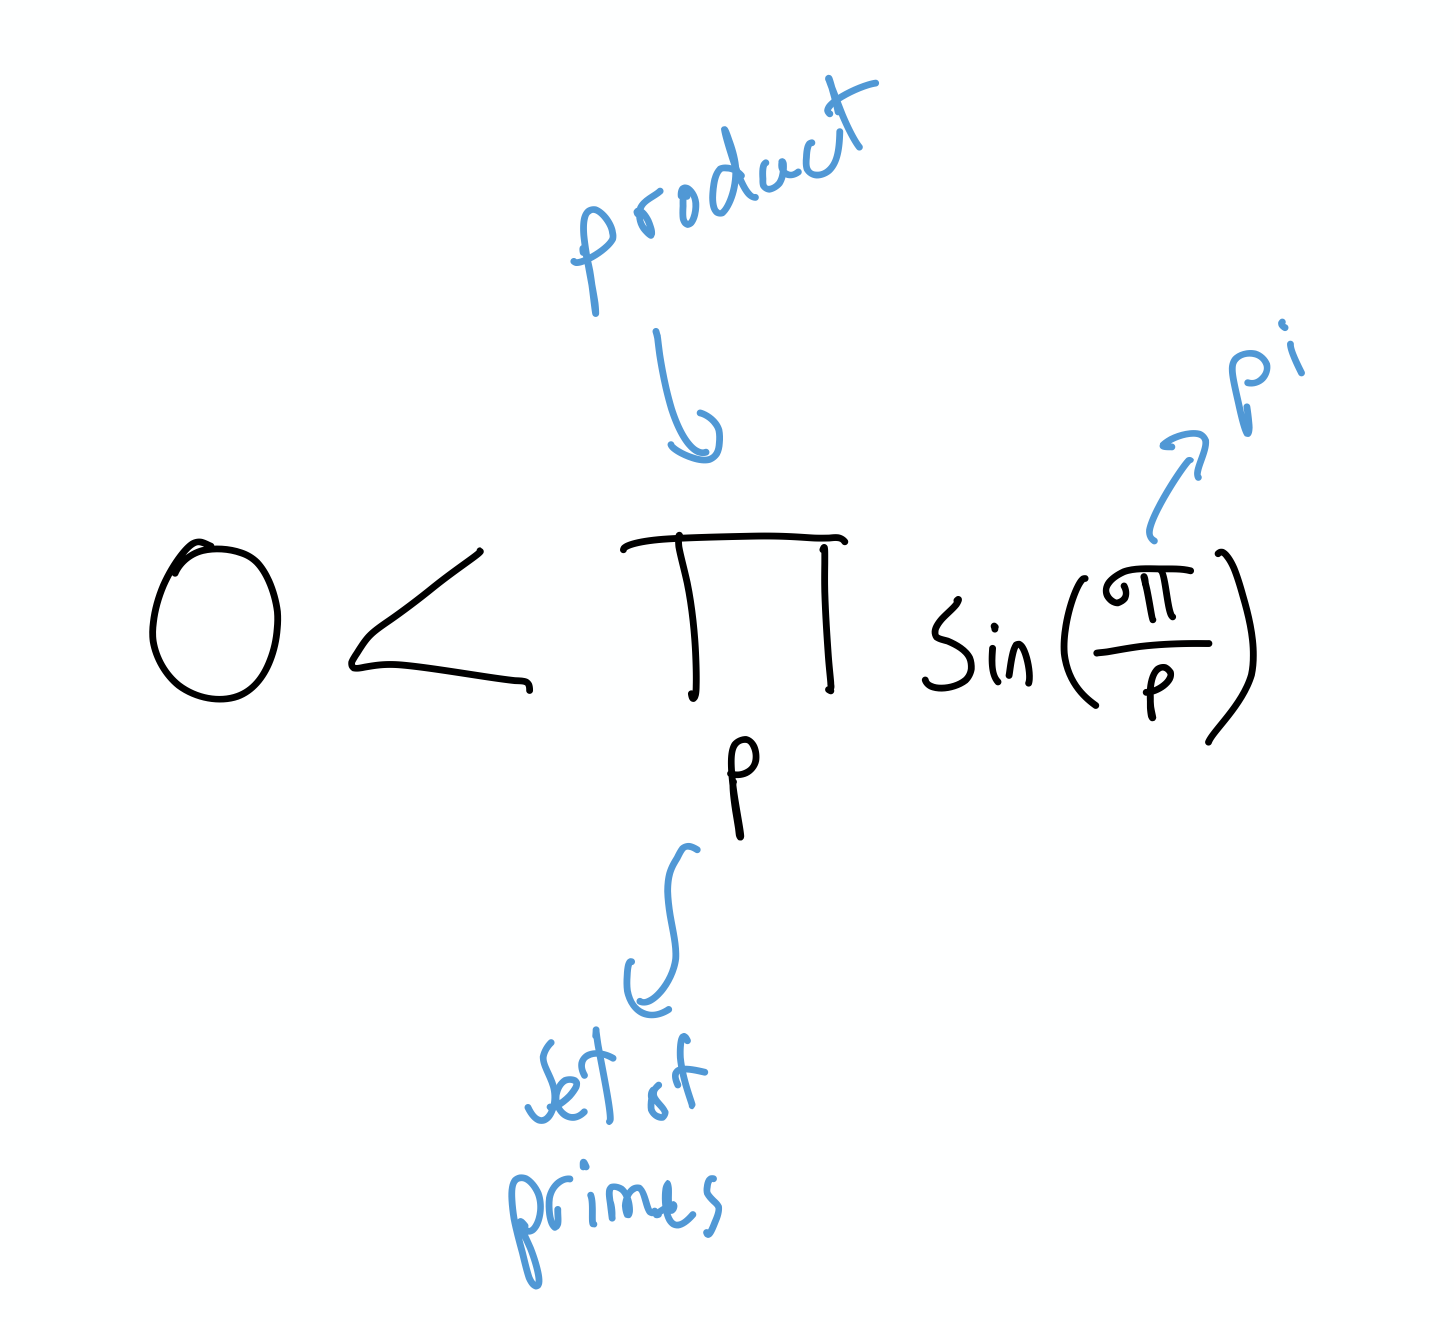 product
pi
0 < ∏ sin(π/p)
p
set of
primes